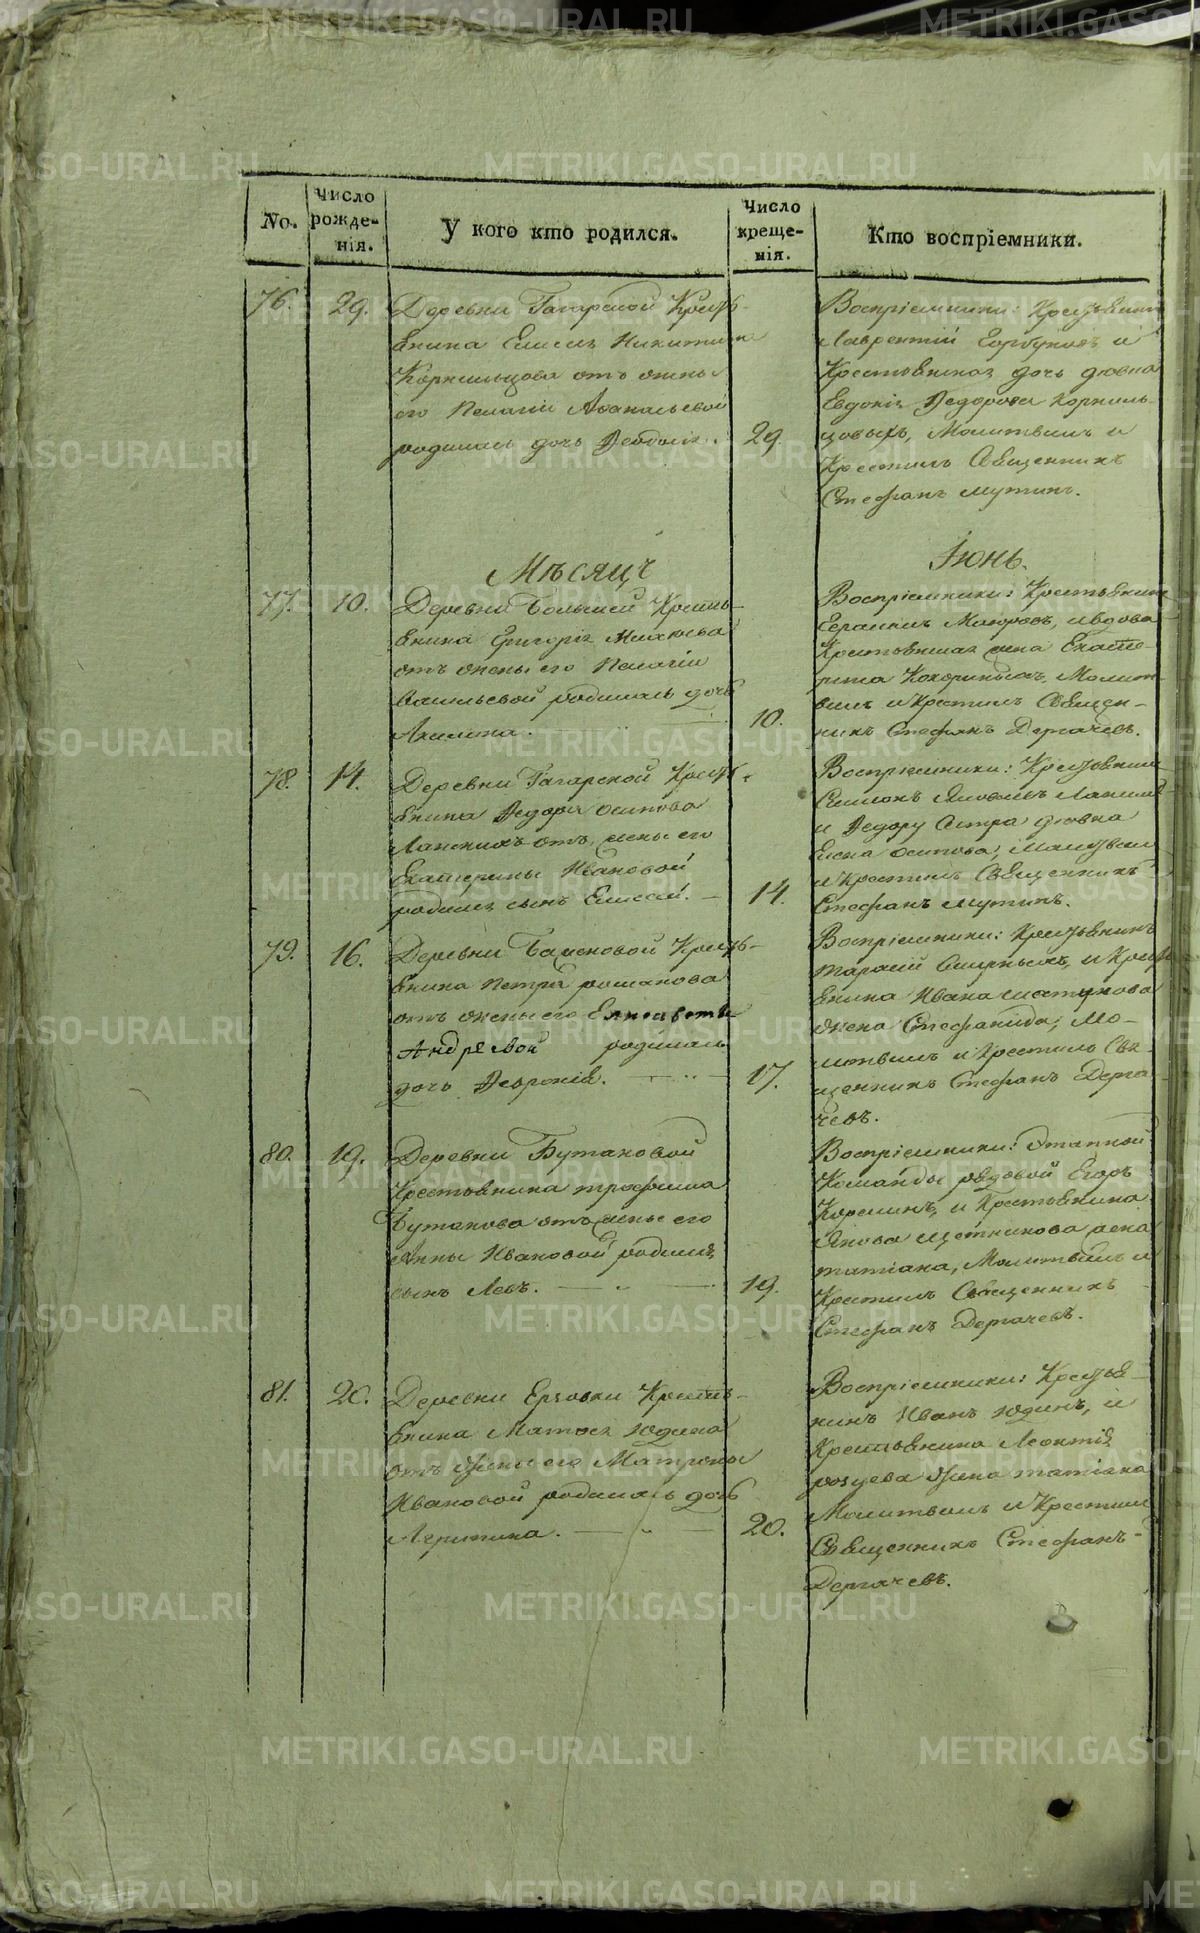 No.
Число рожде-нія.
У кого кто родился.
Число креще-нія.
Кто воспріемники.
76.
29.
Деревни Гагарской Кресть-
янина Елисея Никитина
Корнильцова отъ жены
его Пелагіи Афанасьевой
родилась дочь Ѳеодосія.
29.
Воспріемники: Крестьянинъ
Лаврентій Горбуновъ и
Крестьянская дочь дѣвка
Евдокія Ѳедорова Корниль-
цовыхъ, Молитвилъ и
Крестилъ Священникъ
Стефанъ Мутинъ.
Мѣсяцъ
Іюнь.
77.
10.
Деревни Большей Кресть-
янина Григорія
отъ жены его Пелагіи
Васильевой родилась дочь
Акилина.
10.
Воспріемники: Крестьянинъ
Герасимъ и вдова
Крестьянская жена Екате-
рина Молит-
вилъ и Крестилъ Священ-
никъ Стефанъ Дергачевъ.
78.
14.
Деревни Гагарской Кресть-
янина Ѳедора Осипова
Ланскихъ отъ жены его
Екатерины Ивановой
родился сынъ Елисей.
14.
Воспріемники: Крестьянинъ
Симеонъ Яковлевъ
и Ѳедору сестра дѣвка
Елена Осипова, Молитвилъ
и Крестилъ Священникъ
Стефанъ Мутинъ.
79.
16.
Деревни Баженовой Кресть-
янина Петра Романова
отъ жены его Елисаветы
Андреевой родилась
дочь Ѳевронія.
17.
Воспріемники: Крестьянинъ
Тарасій Смирныхъ, и Кресть-
янина Ивана Шатунова
жена Стефанида, Мо-
литвилъ и Крестилъ Свя-
щенникъ Стефанъ Дерга-
чевъ.
80.
19.
Деревни Бутаковой
Крестьянина Трофима
Бутакова отъ жены его
Анны Ивановой родился
сынъ Левъ.
19.
Воспріемники: Этапной
Команды рядовой Егоръ
Корелинъ, и Крестьянина
Якова Щетникова жена
Татіана, Молитвилъ и
Крестилъ Священникъ
Стефанъ Дергачевъ.
81.
20.
Деревни Ерзовки Кресть-
янина Матвея Юдина
отъ жены его Матрены
Ивановой родилась дочь
Агрипина.
20.
Воспріемники: Крестья-
нинъ Иванъ Юдинъ, и
Крестьянина Леонтія
жена Татіана
Молитвилъ и Крестилъ
Священникъ Стефанъ
Дергачевъ.
METRIKI.GASO-URAL.RU